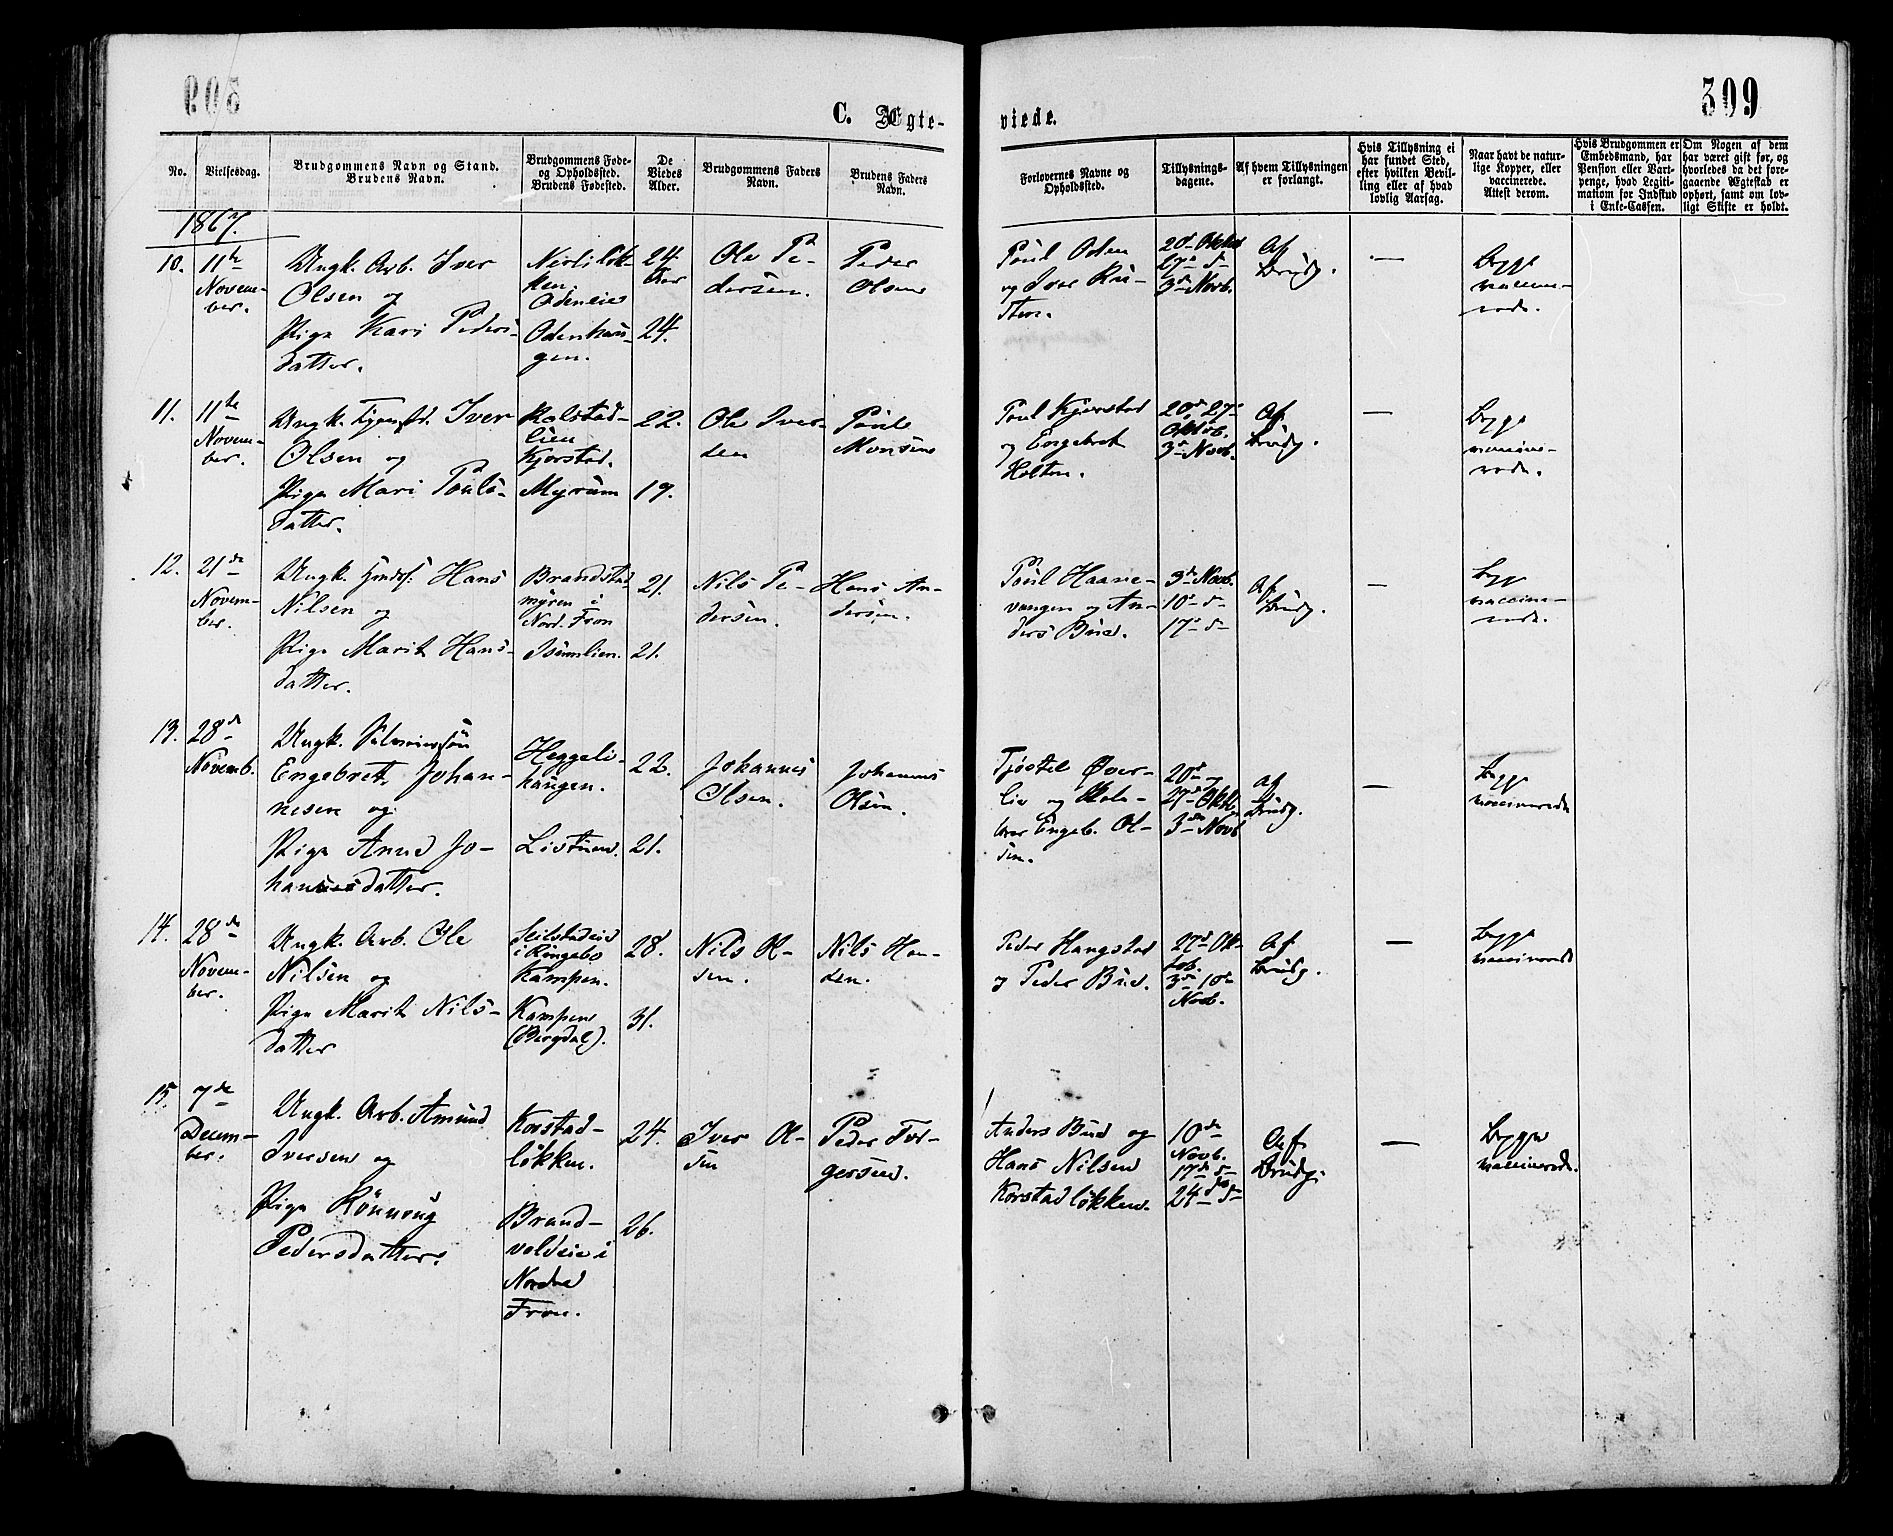 309
C. Ægte-
viede.
No.
Vielsesdag.
Brudgommens Navn og Stand.
Brudens Navn.
Brudgommens Føde-
og Opholdssted.
Brudens Fødested.
De
Viedes
Alder.
Brudgommens Faders
Navn.
Brudens Faders
Navn.
Forlovernes Navne og
Opholdssted.
Tillysnings-
dagene.
Af hvem Tillysningen
er forlangt.
Hvis Tillysning ei
har fundet Sted,
efter hvilken Bevil-
ling eller af hvad
lovlig Aarsag.
Naar havt de natur-
lige Kopper, eller
vaccinerede.
Attest derom.
Hvis Brudgommen er
Embedsmand, har
Pension eller Vart-
penge, hvad Legiti-
mation for Indskud
i Enke-Cassen.
Om Nogen af dem
har været gift før, og
hvorledes da det fore-
gaaende Ægteskab er
ophørt, samt om lov-
ligt Skifte er holdt.
1867.
10.
11te
Novem-
ber.
Ungk. Arb. Iver
Olsen og
Pige Kari Peders-
datter.
Odenhau-
gen.
24
Aar
24.
Ole Pe-
dersen.
Peder
Olsen
Poul Oden
og Iver Ru-
sten.
20d Oktob
27d d-
3d Novb.
Af
Brudg.
—
Begge
vaccine-
rede.
11.
11te
Novem-
ber.
Ungk. Iver
Olsen og
Pige Mari Pouls-
datter.
Kolstad-
lien
Kjorstad.
Myrum
22.
19.
Ole Iver-
sen
Poul
Monsen
Poul Kjorstad
og Engebret
Holten.
20d 27d
Oktob.
3d Novb.
Af
Brudg.
—
Begge
vaccine-
rede.
12.
21de
Novem-
ber.
Ungk. Hans
Nilsen og
Pige Marit Hans-
datter.
Brandstad
myren i
Nord. Fron
Isumlien.
21.
21.
Nils Pe-
dersen.
Hans An-
dersen.
Poul Haave-
vangen og An-
ders Bue.
3de Novb.
10d d-
17d d-
Af
Brudg.
—
Begge
vaccine-
rede.
13.
28de
Novemb.
Ungk.
Engebret Johan-
nesen og
Pige Anne Jo-
hannesdatter.
Heggeli-
haugen.
Listuen.
22.
21.
Johannes
Olsen.
Johannes
Olsen.
Tjøstel Øver-
lie og Hol-
Engeb. Ol-
sen.
20d
27d Oktb.
3de Novb
Af
Brudg.
—
Begge
vaccinerede
14.
28de
Novem-
ber.
Ungk. Arb. Ole
Nilsen og
Pige Marit Nils-
datter
i Ringebo
Kampen.
Kampen
(Bergdal).
28.
31.
Nils Ol-
sen.
Nils Han-
sen.
Peder Haugstad
og Peder Bue.
27d Ok-
tob.
3d 10d
Novb.
Af
Brudg.
—
Begge
vaccinerede
15.
7de
Decem-
ber.
Ungk. Arb. Amund
Iversen og
Pige Rønnoug
Pedersdatter.
Korstad-
løkken.
Brand-
voldeie i
Nordre
Fron.
24.
26.
Iver Ol-
sen
Peder Tor-
gersen.
Anders Bue og
Hans Nilsen
Korstadløkken.
10de
Novb.
17d d-
24de d-
Af
Brudg.
—
Begge
vaccinerede.